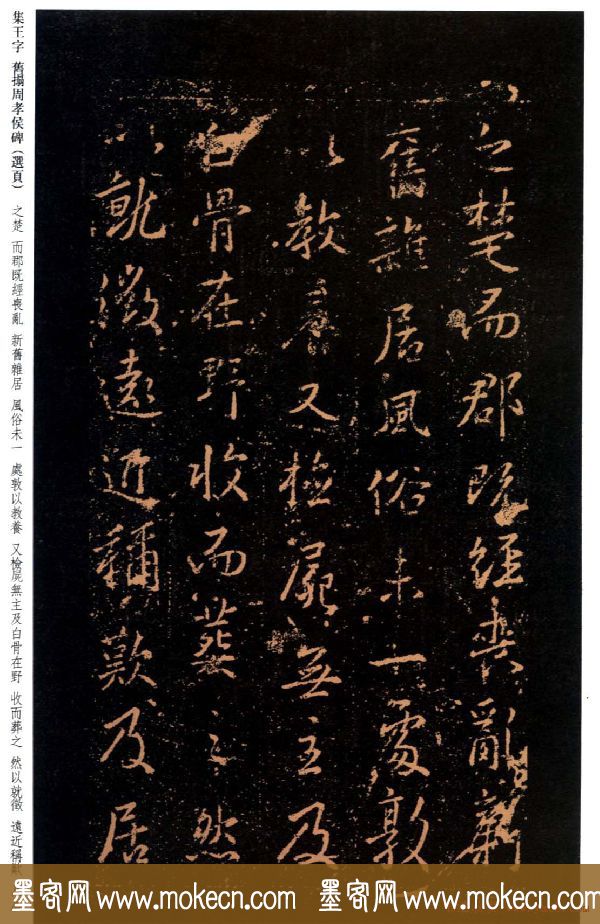 集王字 舊搨周孝侯碑（選頁） 之楚 而郡既經喪亂 新舊雜居 風俗未一 處敦以教養 又檢屍無主及白骨在野 收而葬之 然以就徵 遠近稱歎
之楚而郡既經喪亂新
舊雜居風俗未一處敦
以教養又檢屍無主及
白骨在野收而葬之然
以就徵遠近稱歎及居
墨客网 www.mokecn.com 墨客网 www.mokecn.com